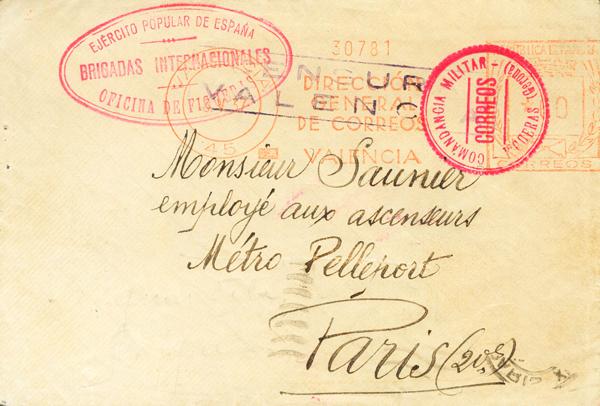 EJÉRCITO POPULAR DE ESPAÑA
BRIGADAS INTERNACIONALES
OFICINA DE
30781
DIRECCIÓN
GENERAL
DE CORREOS
VALENCIA
45
COMANDANCIA MILITAR
CORREOS
CORREOS
Monsieur Saunier
employé aux ascenseurs
Métro Pelleport
Paris (20e)